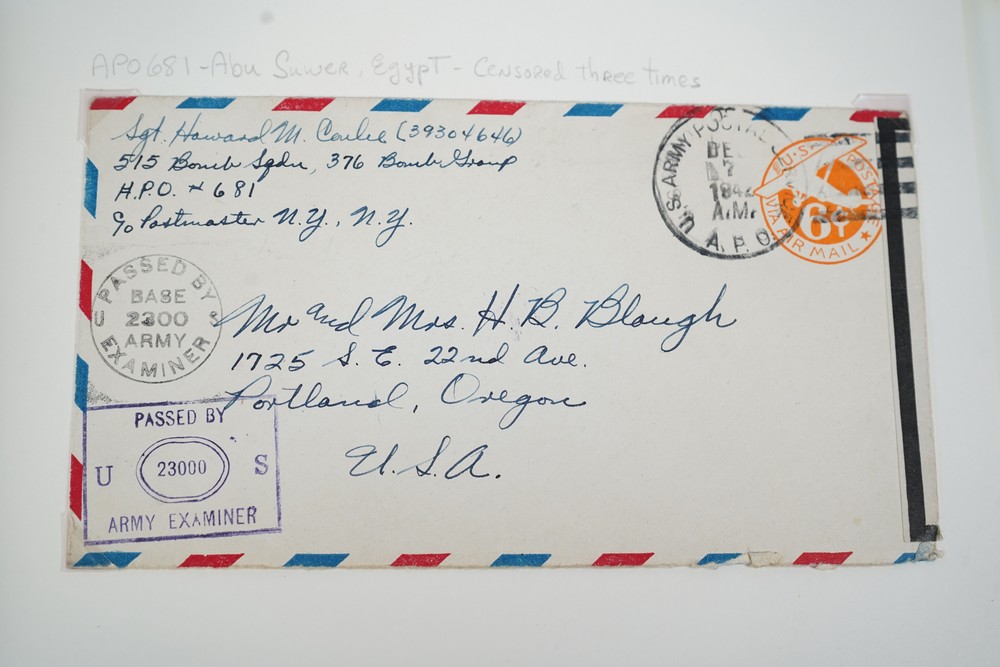 APO 681 - Abu Suwer, Egypt - Censored three times
Sgt. Howard M. Conlee (39304646)
515 Bomb Sqdn, 376 Bomb Group
A.P.O. # 681
c/o Postmaster N.Y., N.Y.
U.S. ARMY POSTAL
DEC
17
1942
A.M.
A.P.O.
U.S. POSTAGE
6¢
VIA AIR MAIL
PASSED BY
BASE
U 2300 S
ARMY
EXAMINER
Mr and Mrs. H. B. Blough
1725 S. E. 22nd Ave.
Portland, Oregon
U.S.A.
PASSED BY
U 23000 S
ARMY EXAMINER